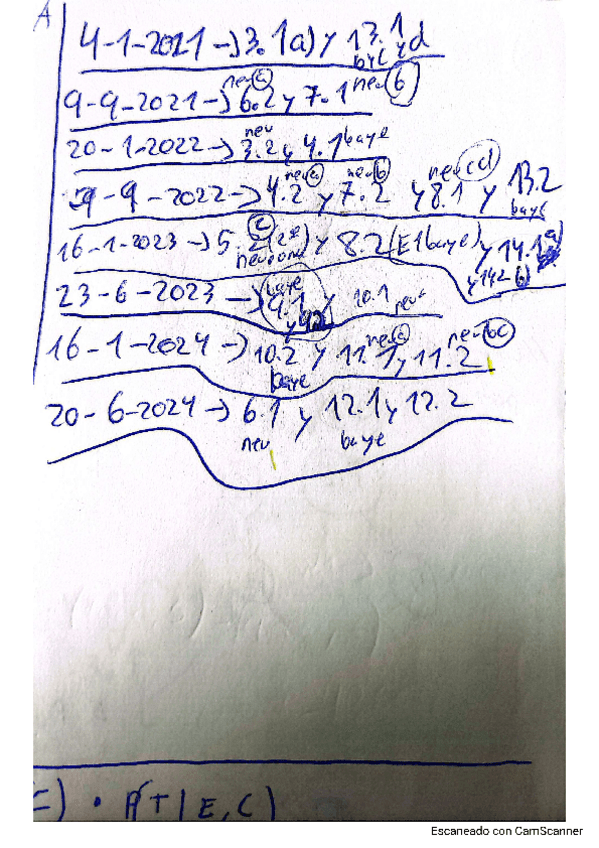 A
4-1-2021 → 3.1a) y 13.1
bayc y d
9-9-2021 → 6.2 y 7.1 neu b
neu a
20-1-2022 → 3.2 y 4.1 baye
neu
9-9-2022 → 4.2 y 7.2 y 8.1 y 13.2
neu a neu b neu c d baye
16-1-2023 → 5.2 (2ª) y 8.2 (E1 baye) y 14.1 a)
c neurona y 14.2 b)
23-6-2023 → 9.1 y 10.1 neu
baye
16-1-2024 → 10.2 y 11.1 y 11.2
baye neu a neu bc
20-6-2024 → 6.1 y 12.1 y 12.2
neu baye
) • P(T|E,C)
Escaneado con CamScanner